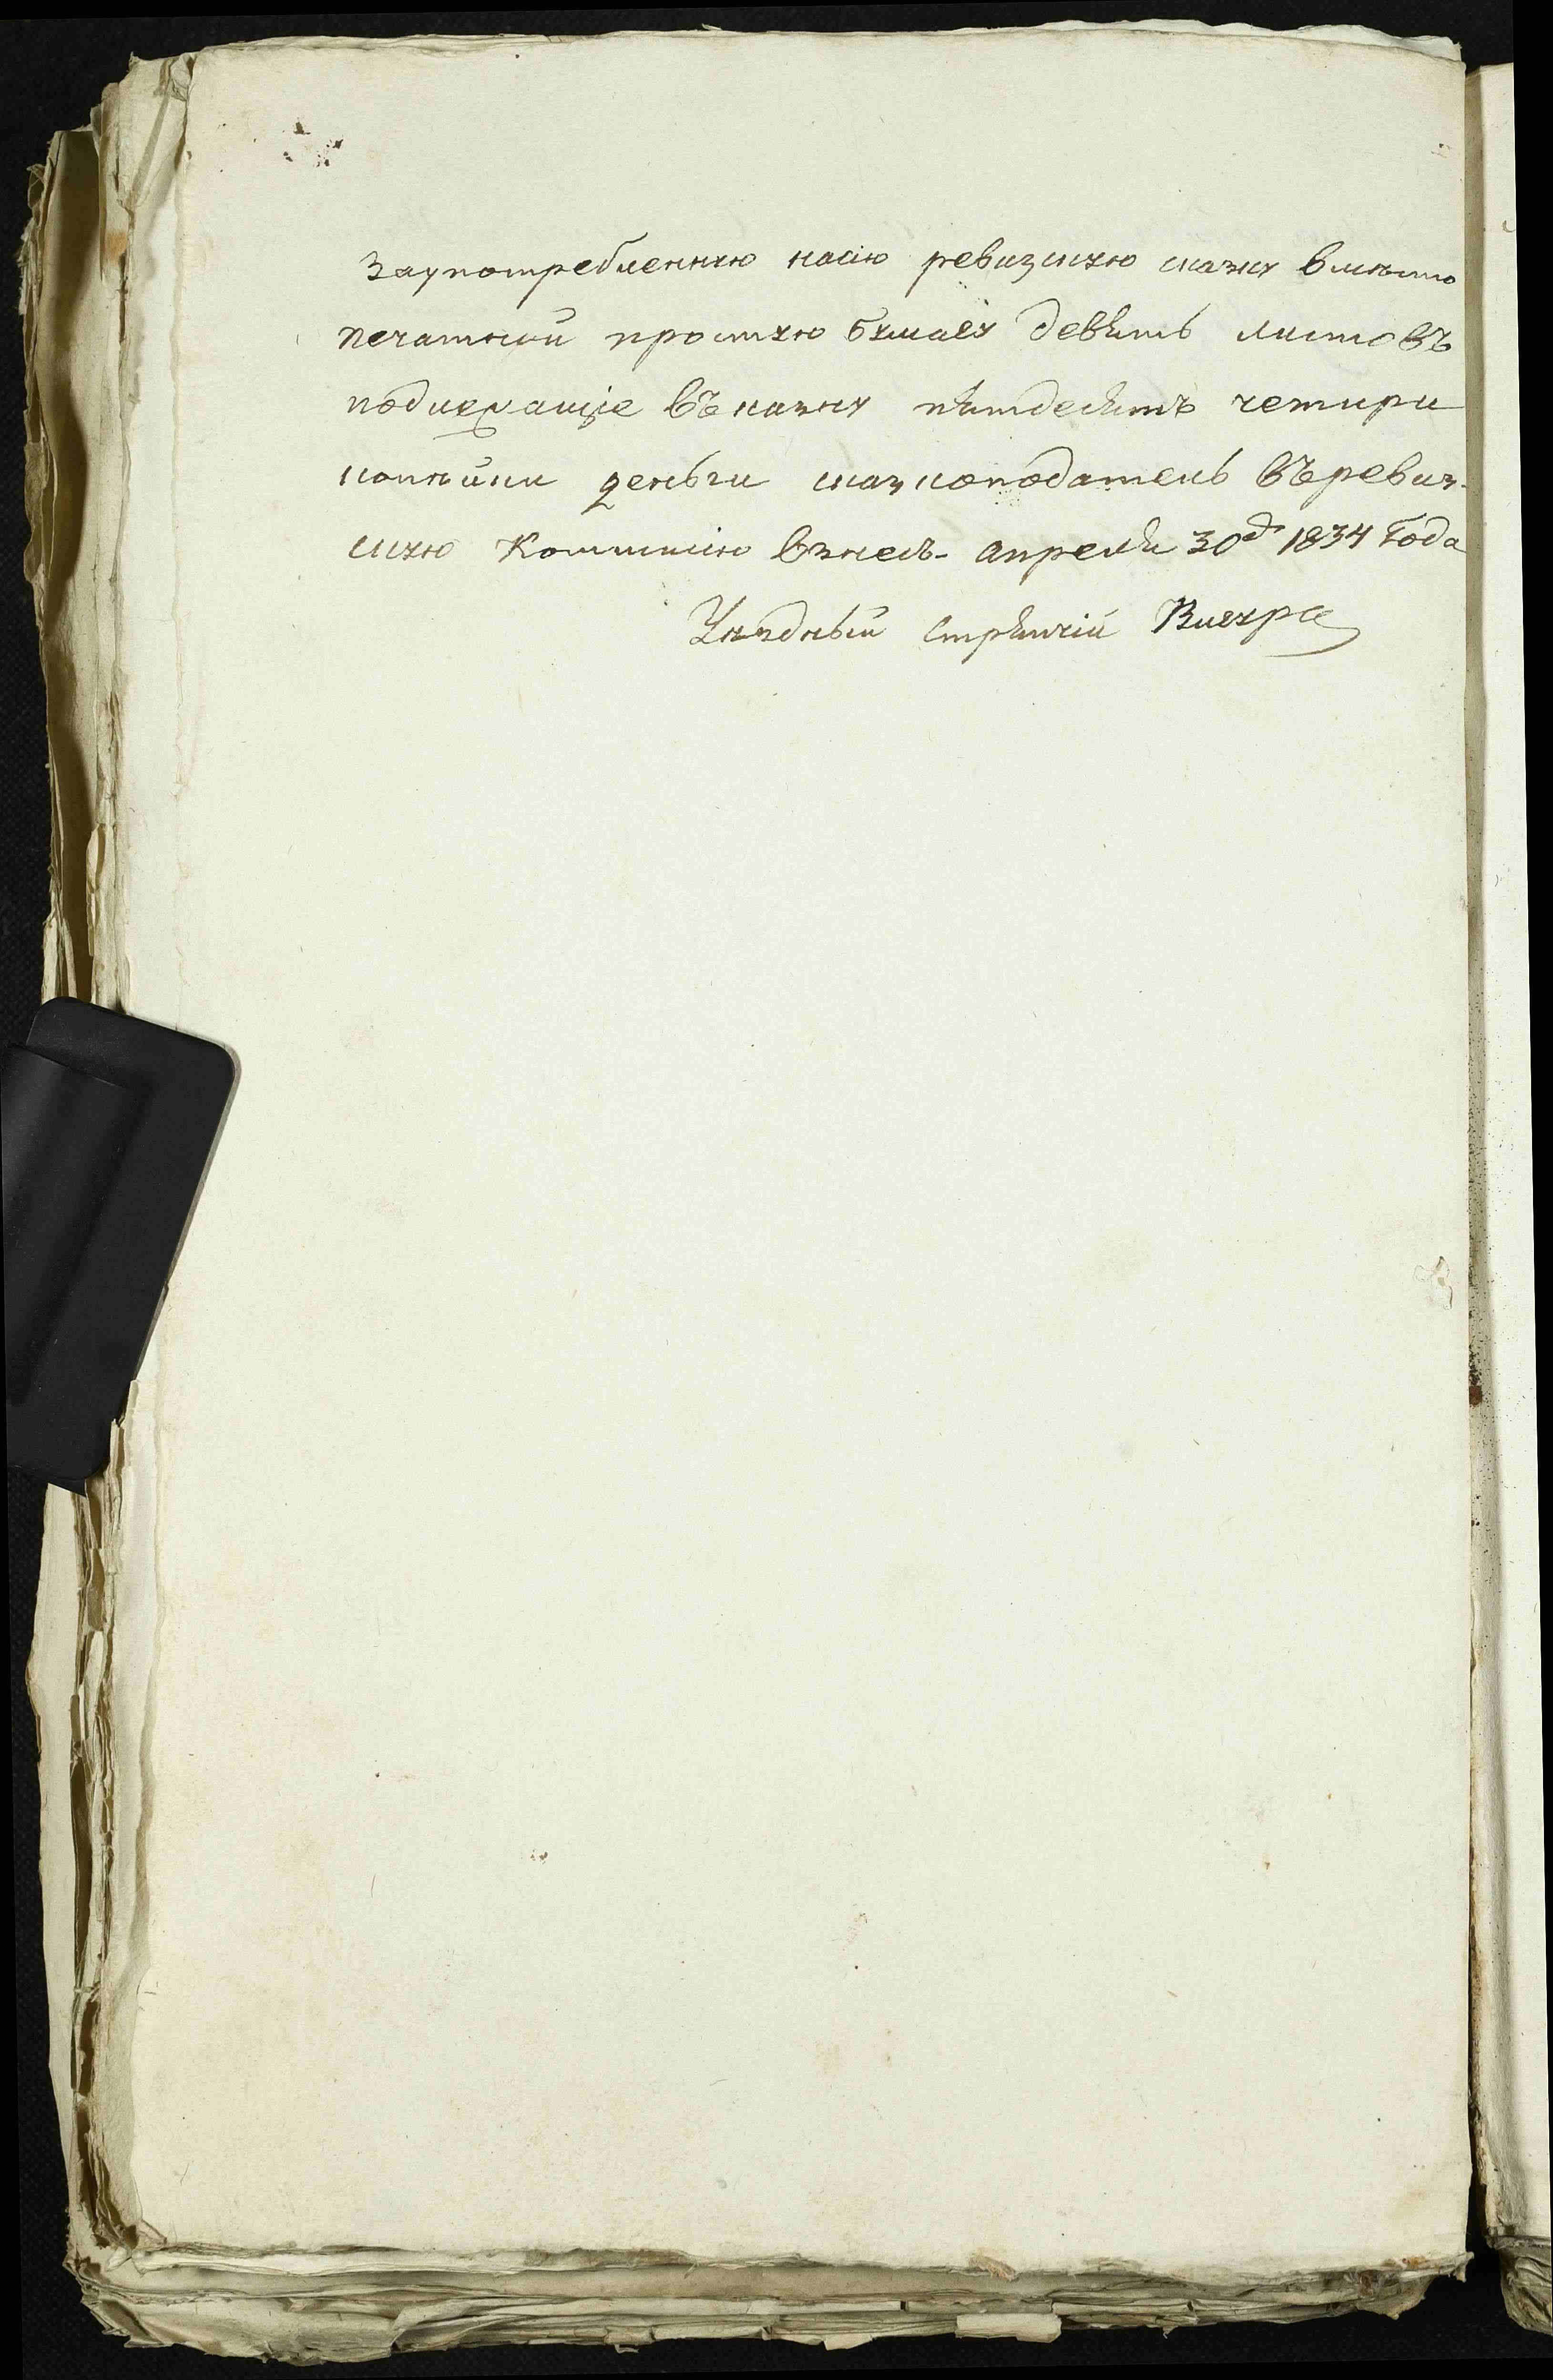 Заупотребленную насію ревизскую сказку вмѣсто
печатной простую бумагу девять листовъ
подлежащіе въ казну пятдесятъ четири
копѣйки деньги сказкоподатель въ ревиз-
скую Коммисію взнесъ - Апреля 30д 1834 Года
Уѣздный Стряпчій